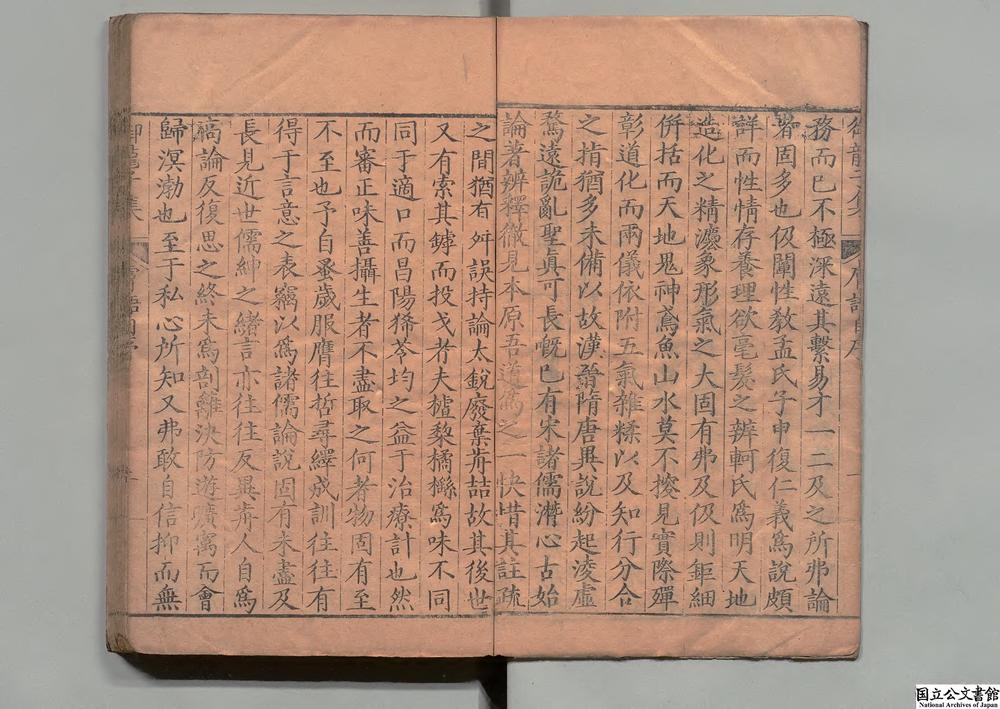 務而已不極深遠其繫易才一二及之所弗論
者固多也伋闡性敎孟氏子申復仁義爲說頗
詳而性情存養理欲毫髮之辨軻氏爲明天地
造化之精瀍象形氣之大固有弗及伋則鉅細
併括而天地鬼神鳶魚山水莫不揆見實際殫
彰道化而兩儀依附五氣雜糅以及知行分合
之㫖猶多未備以故漢晉隋唐異說紛起淩虛
騖遠詭亂聖眞可長慨巳有宋諸儒潛心古始
論著辨釋徹見本原吾道爲之一快惜其註疏
之間猶有舛誤持論太銳廢棄前喆故其後世
又有索其鏬而投戈者夫樝棃橘櫾爲味不同
同于適口而昌陽豨苓均之益于治療計也然
而審正味善攝生者不盡取之何者物固有至
不至也予自蚤歲服膺往哲尋繹成訓往往有
得于言意之表竊以爲諸儒論說固有未盡及
長見近世儒紳之緖言亦往往反異前人自爲
高論反復思之終未爲剖離決防遊曠寓而會
歸溟渤也至于私心所知又弗敢自信抑而無
国立公文書館
National Archives of Japan